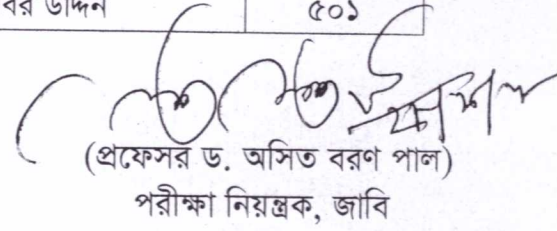 উদ্দিন ৫০১
(প্রফেসর ড. অসিত বরণ পাল)
পরীক্ষা নিয়ন্ত্রক, জাবি